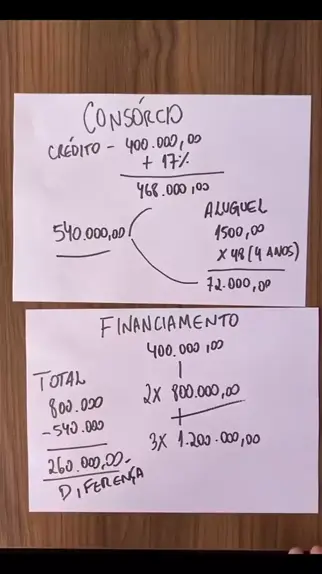 CONSÓRCIO
CRÉDITO - 400.000,00
+ 17%
468.000,00
540.000,00
ALUGUEL
1500,00
X 48 (4 ANOS)
72.000,00
FINANCIAMENTO
400.000,00
TOTAL
800.000
-540.000
260.000,00-
DIFERENÇA
2X 800.000,00
+
3X 1.200.000,00